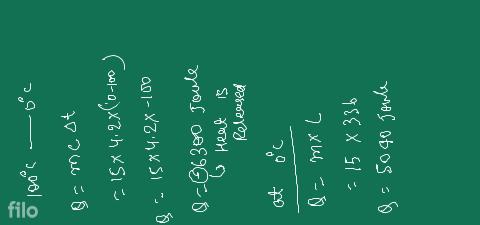 100°C —— 0°C
Q = mc Δt
= 15 x 4.2 x (0-100)
Q = 15 x 4.2 x -100
Q = ⊖6300 Joule
↳ Heat is
Released
at 0°C
Q = m x L
= 15 x 336
Q = 5040 Joule
filo